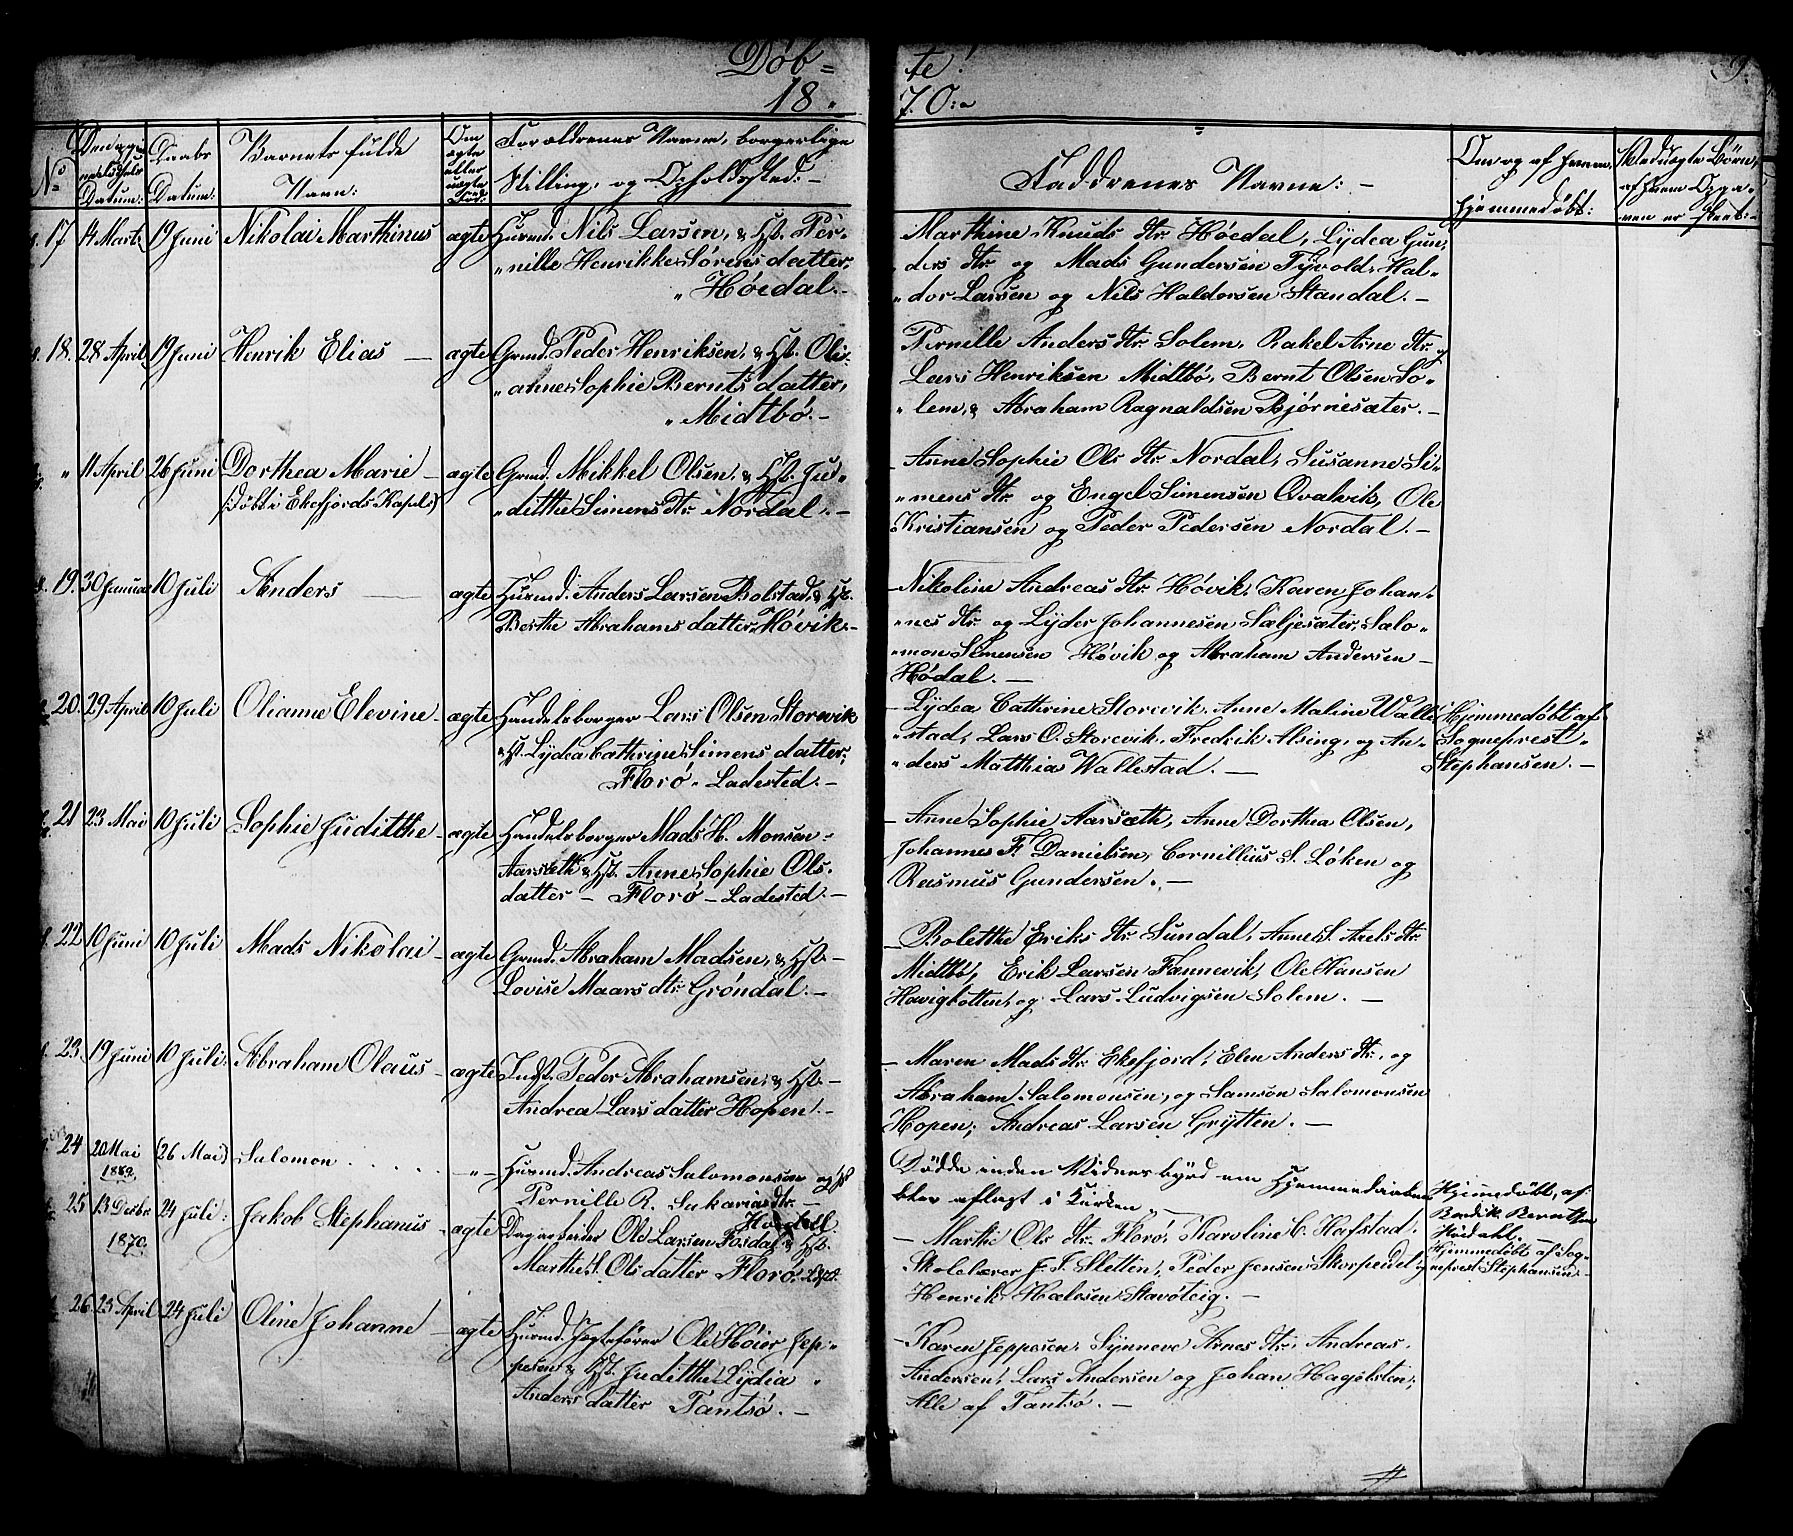 Døb=
18.
te!
70.
9.
No
Daabs
Datum:
Barnets fulde
Navn:
Om
ægte
eller
uægte
fød:
Forældrenes Navne, borgerlige
Stilling, og Opholdssted:-
Faddrenes Navne:-
Om og af hvem
hjemmedøbt:
17 14 Marts 19 Juni Nikolai Marthinus ægte Huusmd. Nils Larsen, & Hst. Per-
"nille Henrikke Sørens datter,
"Høidal.-
Marthine Knuds dtr. Høidal, Lydea Gun-
"ders dtr. og Mads Gundersen Tyvold, Hal-
"dor Larsen og Nils Haldorsen Standal.-
18. 28 April 19 Juni Henrik Elias - ægte Grmd. Peder Henriksen, & Hst. Oli-
"anne Sophie Bernts datter,
"Midtbø.-
Pernille Anders dtr. Solem, Rakel Arne dtr. og
Lars Henriksen Midtbø, Bernt Olsen So-
"lem, & Abraham Ragnaldsen Bjørnesæter.-
" 11 April 26 Juni Dorthea Marie - ægte Grmd. Mikkel Olsen, & Hst. Ju-
(Døbt i Ekefjords Kapel) "ditthe Simens dtr. Nordal.-
Anne Sophie Ols dtr. Nordal, Susanne Si-
"mens dtr. og Engel Simensen Qvalvik, Ole
Kristiansen og Peder Pedersen Nordal.-
19. 30 Januar 10 Juli Anders - ægte Huusmd. Anders Larsen Bolstad, & Hst.
Berthe Abrahams datter Høvik.-
- Nikoline Andreas dtr. Høvik, Karen Johan-
"nes dtr. og Lyder Johannesen Sæljesæter, Salo-
"mon Simensen Høvik og Abraham Andersen -
Hødal.-
20. 29 April 10 Juli Olianne Elevine - ægte Handelsborger Lars Olsen Storevik
& Hst. Lydea Cathrine Simens datter,
Florø - Ladested.-
- Lydea Cathrine Storevik, Anne Maline Walle-
"stad, Lars O. Storevik, Fredrik Alsing, og An-
"ders Matthias Wallestad.-
Hjemmedøbt af
Sogneprest
Stephansen.-
21 23 Mai 10 Juli Sophie Juditthe - ægte Handelsborger Mads H. Monsen -
Aarsæth & Hst. Anne Sophie Ols-
datter - Florø - Ladested.-
- Anne Sophie Aarsæth, Anne Dorthea Olsen,
Johannes F. Danielsen, Cornillius S. Løken og
Rasmus Gundersen.-
22 10 Juni 10 Juli Mads Nikolai - ægte Grmd. Abraham Madsen, & Hst.-
Lovise Maars dtr. Grøndal.-
- Bolethe Eriks dtr. Sundal, Anne S. Axels dtr.
Midtbø, Erik Larsen Fannevik, Ole Hansen
Havigbotten, og Lars Ludvigsen Solem.-
23. 19 Juni 10 Juli Abraham Olaus - ægte Indst. Peder Abrahamsen, & Hst.-
Andrea Lars datter Hopen.-
- Maren Mads dtr. Ekefjord, Elen Anders dtr. og
Abraham Salomonsen, og Samson Salomonsen
Hopen, Andreas Larsen Grytten.-
24 20 Mai (26 Mai) Salomon . . . . . "- Huusmd. Andreas Salomonsen og Hst.
1869. Pernille R. Sakarias dtr.-
Dødde inden Vidnesbyrd om Hjemmedaaben
blev aflagt i Kirken.-
Hjemmedøbt af
Bendik Berntsen
Høidahl.-
25 13 Decbr. 24 Juli Jakob Stephanus - ægte Dagarbeider Ole Larsen Fosdal & Hst.
1870. Marthe S. Ols datter Florø Ldst.
- Marthe Ols dtr. Florø, Karoline C. Hafstad,
Skolelærer J. J. Sletten, Peder Jensen Skorpeidet og
Henrik Hælesen Stavøteig.-
Hjemmedøbt af Sog-
neprest Stephansen.-
26 23 April 24 Juli Oline Johanne - ægte Huusmd. Jægtefører Ole Høier Jep-
pesen & Hst. Juditthe Lydia
Anders datter Tantsø.-
- Karen Jeppesen, Synneve Arnes dtr. Andreas
Andersen, Lars Andersen og Johan Hagelsten,
Alle af Tantsø.-